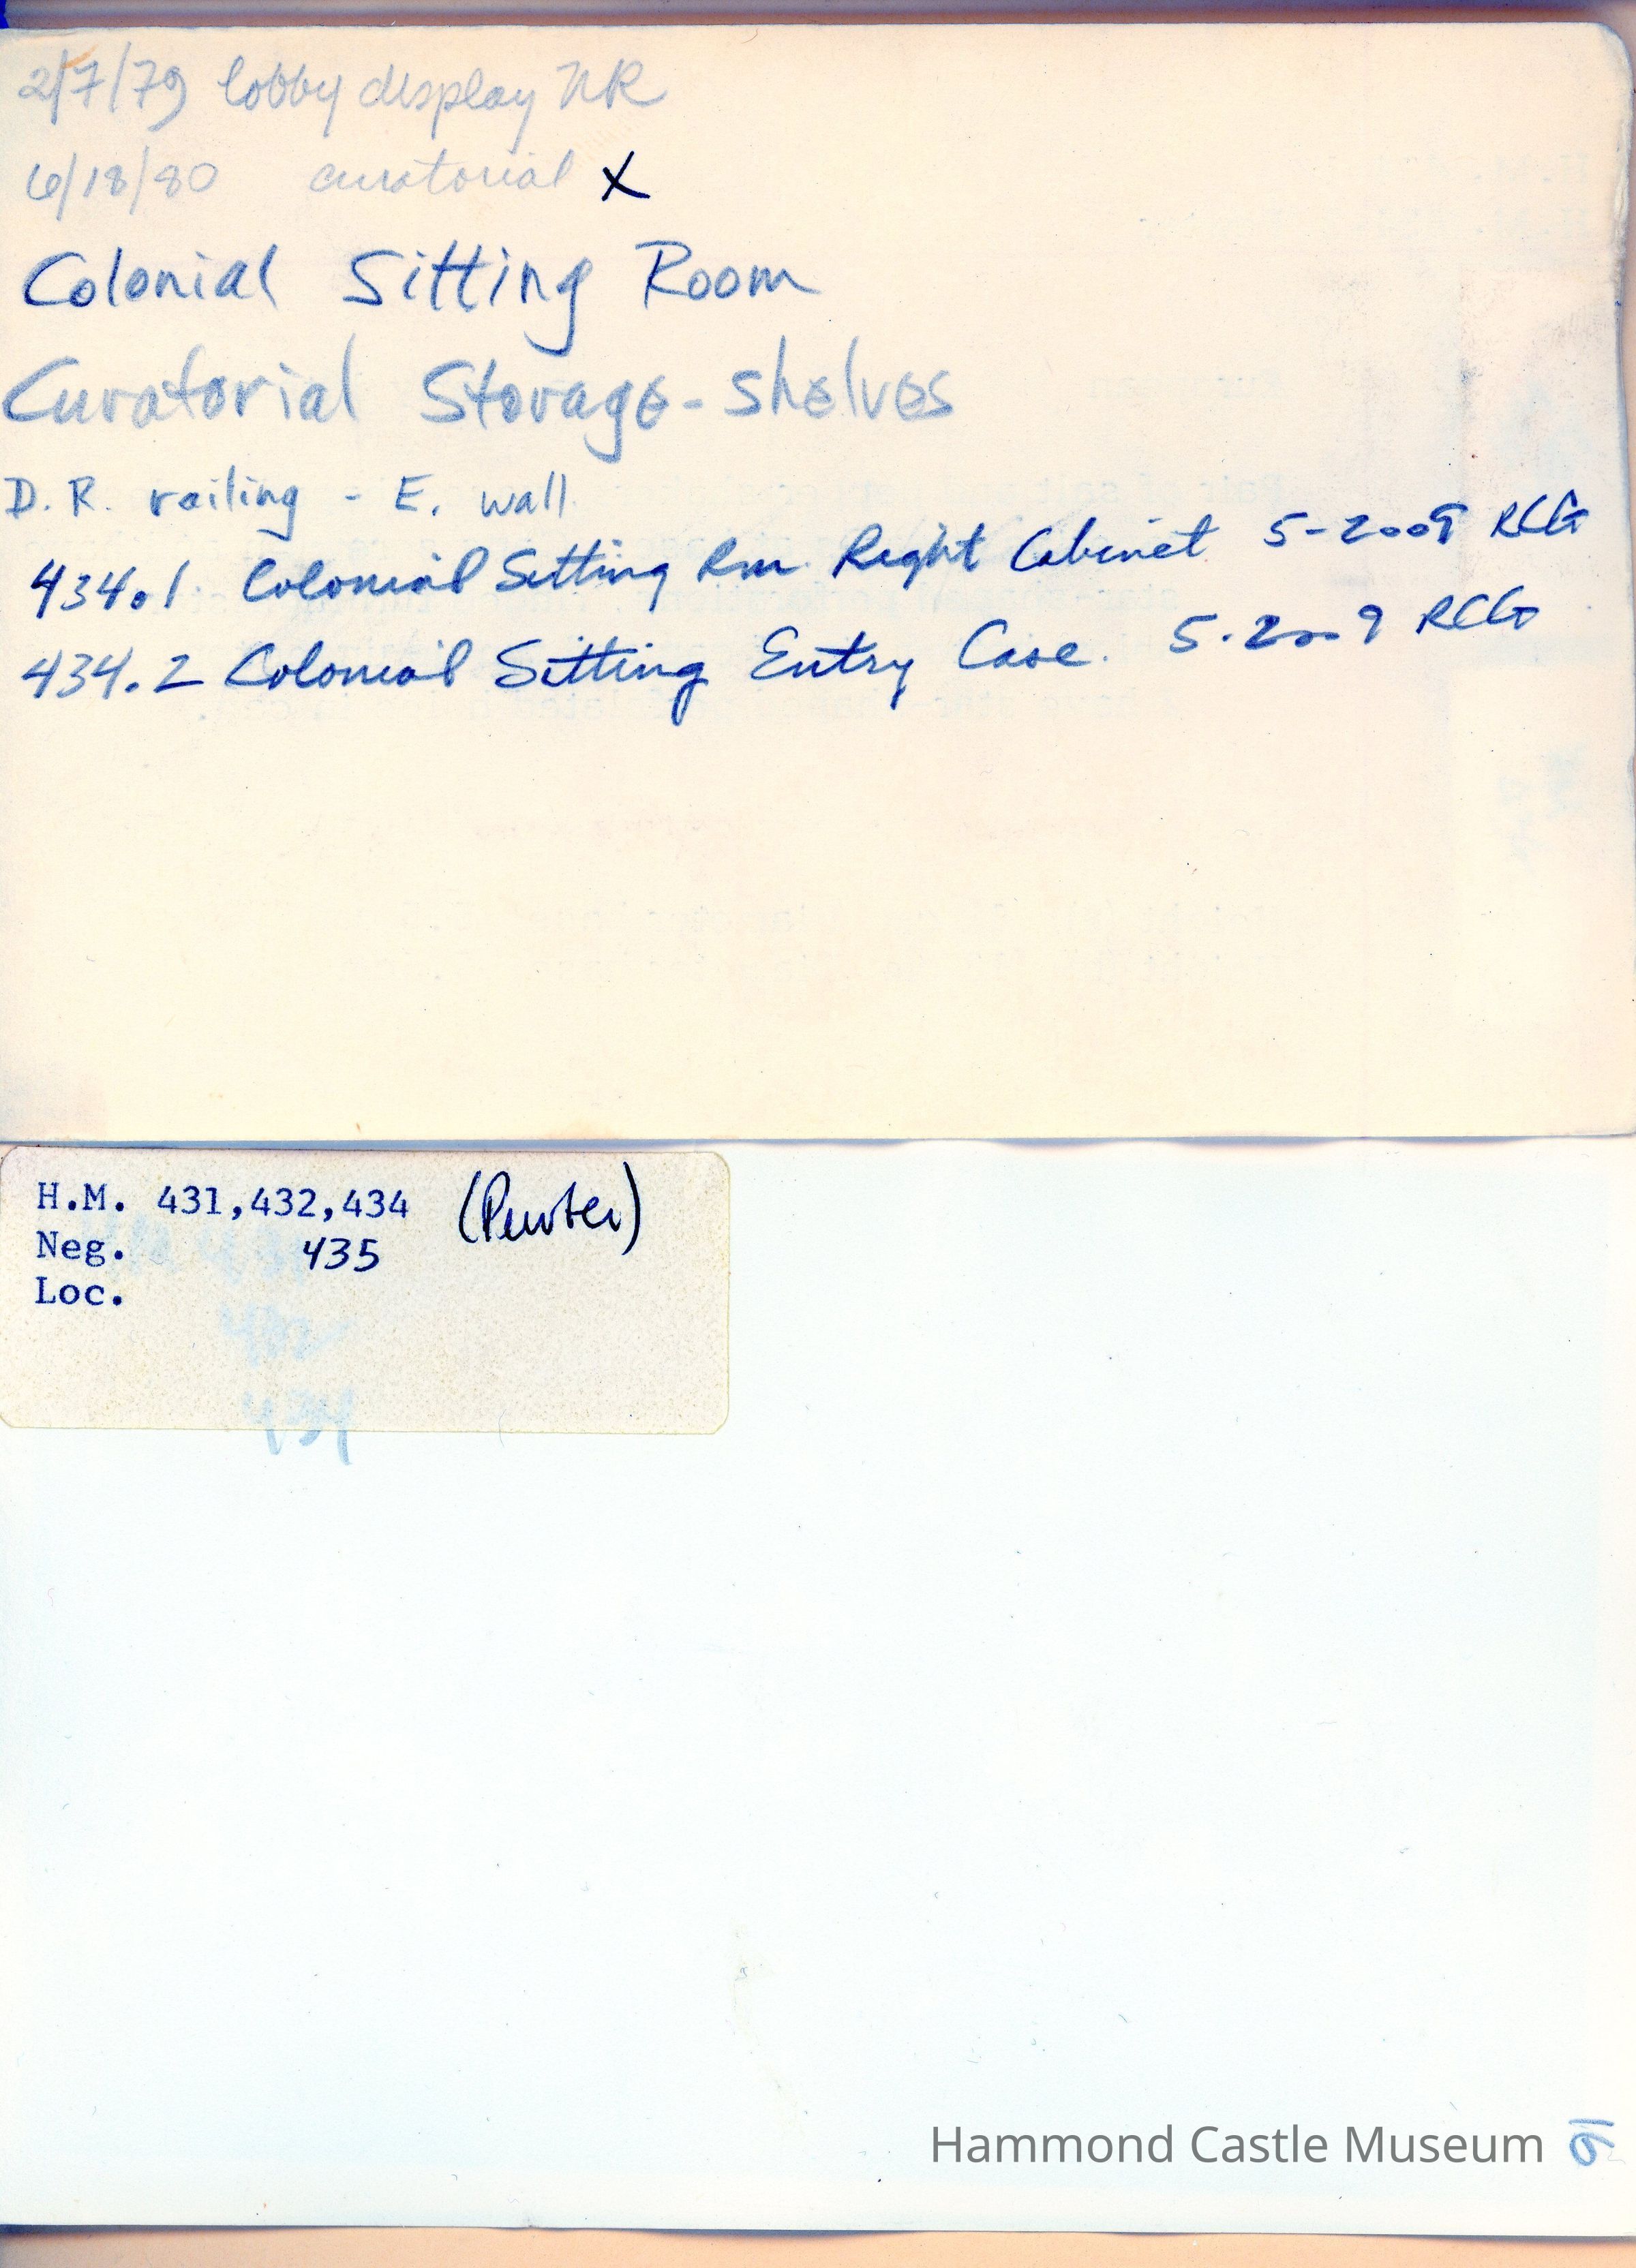 2/7/79 lobby display NR
6/18/80 curatorial X
Colonial Sitting Room
Curatorial Storage - shelves
D.R. railing - E. wall
434.1 Colonial Sitting Rm. Right Cabinet 5-2009 RCG
434.2 Colonial Sitting Entry Case. 5.2009 RCG
H.M. 431,432,434 (Pewter)
Neg. 435
Loc.
Hammond Castle Museum